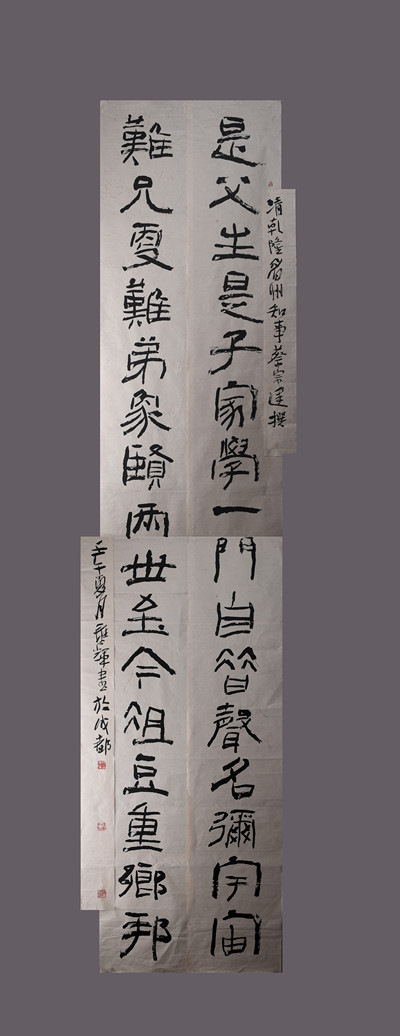 清乾隆眉州知事蔡宗建撰
是父生是子家學一門自昔聲名彌宇宙
難兄更難弟象賢兩世至今俎豆重鄉邦
壬午夏月書於成都